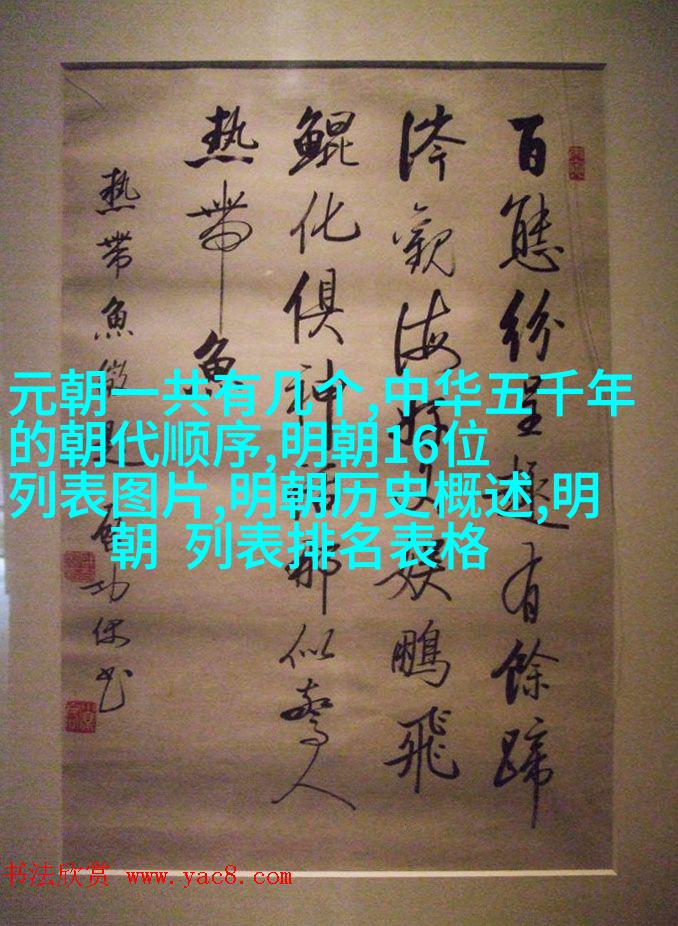 百態紛呈趣有餘蹄
涔觀海娛鵬飛
鯤化俱神話那似驚人
熱帶魚
熱帶魚
元朝一共有几个,中华五千年
的朝代顺序,明朝16位
列表图片,明朝历史概述,明
朝 列表排名表格
书法欣赏 www.yac8.com